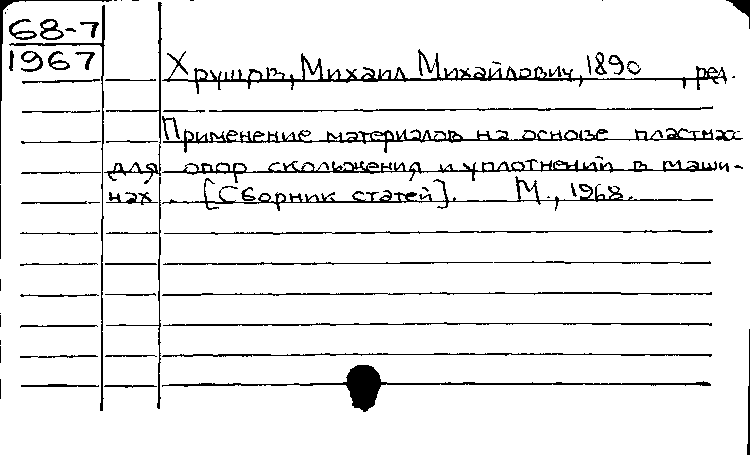 68-7
1967
Хрущов, Михаил Михайлович, 1890 , ред.
Применение материалов на основе пластмасс
для опор скольжения и уплотнений в маши-
нах. [Сборник статей]. М., 1968.